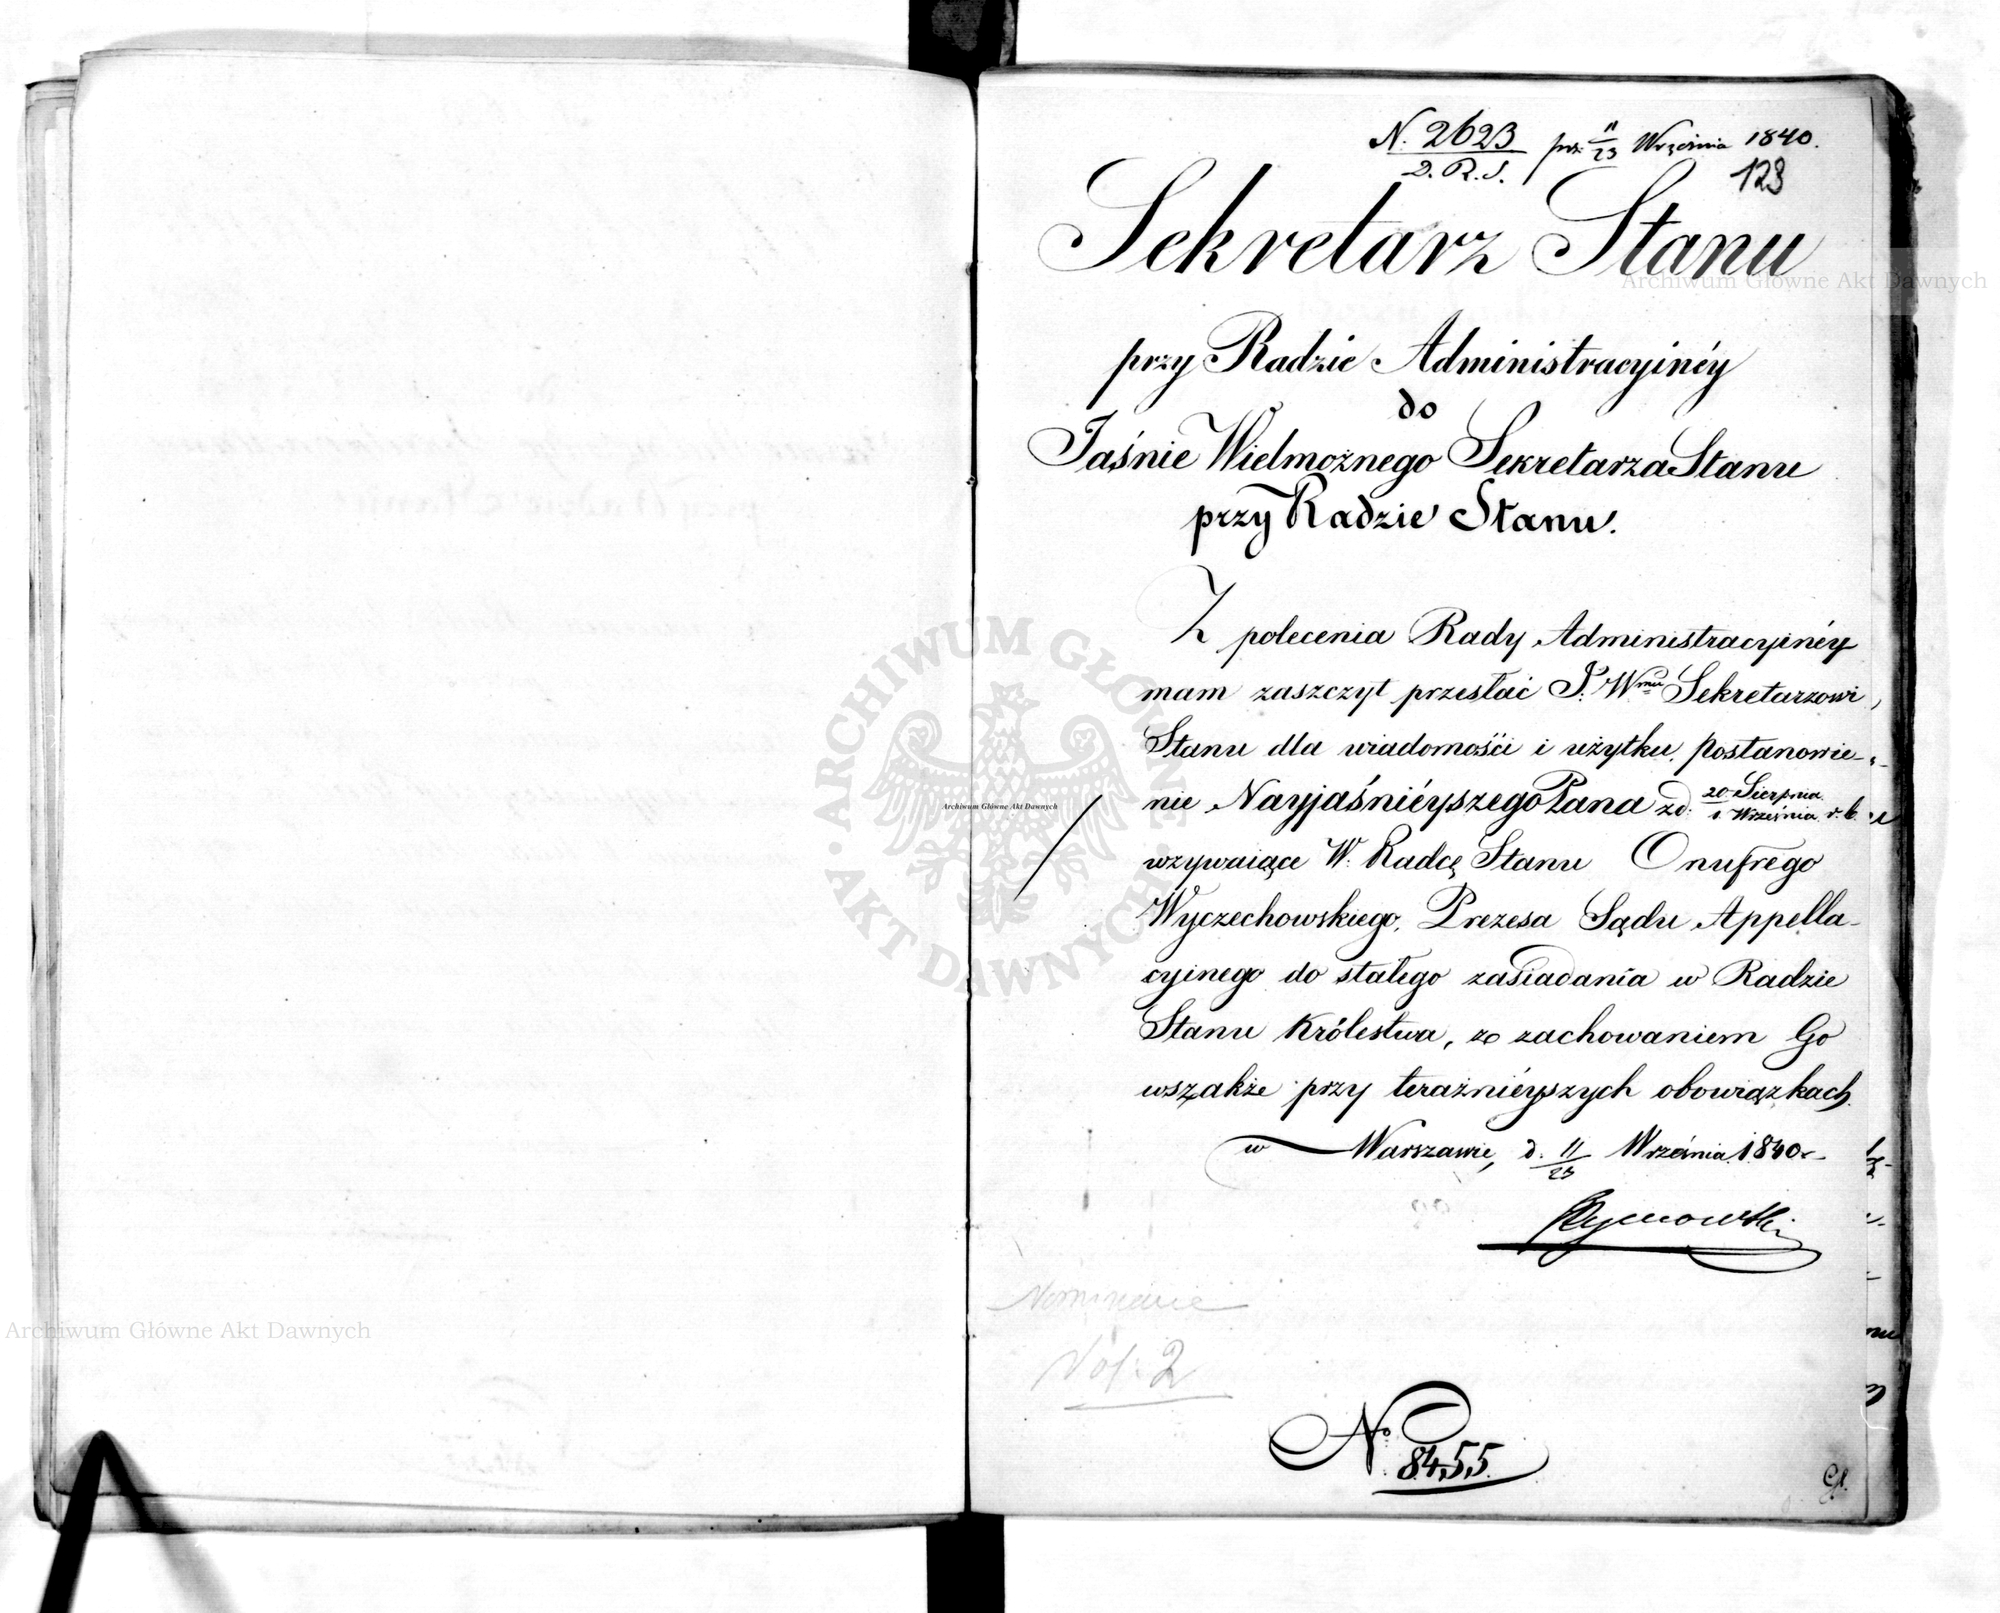 N. 2623 prz. 11/23 Września 1840.
D. R. S.
123
Sekretarz Stanu
przy Radzie Administracyinéy
do
Jaśnie Wielmożnego Sekretarza Stanu
przy Radzie Stanu.
Z polecenia Rady Administracyinéy
mam zaszczyt przesłać J. Wmu Sekretarzowi
Stanu dla wiadomości i użytku, postanowie-
nie Nayjaśniéyszego Pana z d. 20 Sierpnia / 1. Września r. b.
wzywaiące W. Radcę Stanu Onufrego
Wyczechowskiego, Prezesa Sądu Appella-
cyinego do stałego zasiadania w Radzie
Stanu Królestwa, z zachowaniem Go
wszakże przy teraźniéyszych obowiązkach.
w Warszawie, d. 11/23 Września 1840 r.
Nominacie
Vol: 2
No 8455.
Archiwum Główne Akt Dawnych
Archiwum Główne Akt Dawnych
Archiwum Główne Akt Dawnych
ARCHIWUM GŁÓWNE
AKT DAWNYCH